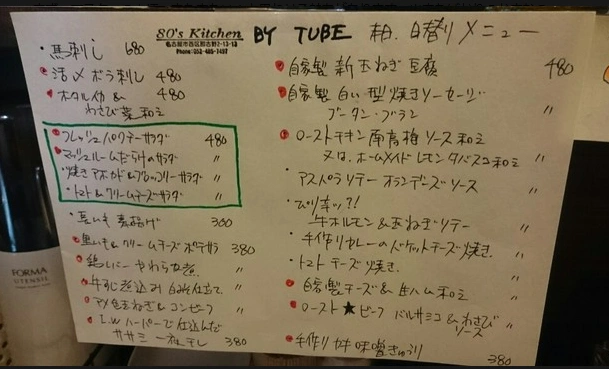 80's Kitchen
名古屋市西区那古野2-13-13
Phone:052-485-7497
BY TUBE 相. 日替りメニュー
・馬刺し 680
・活〆ボラ刺し 480
・ホタルイカ &
わさび菜和え 480
・フレッシュパクチーサラダ 480
・マッシュルームだらけのサラダ 〃
・焼きアボカド&ブロッコリーサラダ 〃
・トマト&クリームチーズサラダ 〃
・長いも素揚げ 300
・黒いも&クリームチーズポテサラ 380
・鶏レバーやわらか煮 〃
・牛すじ煮込み 白みそ仕立て 〃
・アメ色玉ねぎ&コンビーフ 〃
・I.W ハーパーで仕込んだ
ササミ一夜干し 380
・自家製 新玉ねぎ豆腐 480
・自家製 白い型焼きソーセージ
ブータン・ブラン 〃
・ローストチキン 南高梅ソース和え
又は、ホームメイドレモンタバスコ和え 〃
・アスパラソテー オランデーズソース 〃
・ぴり辛ッ?!
牛ホルモン&玉ねぎソテー 〃
・手作りカレーのバケットチーズ焼き. 〃
・トマトチーズ焼き. 〃
・自家製チーズ&生ハム和え 〃
・ロースト★ビーフ バルサミコ&わさび
ソース 〃
・手作り 味噌きゅうり 380